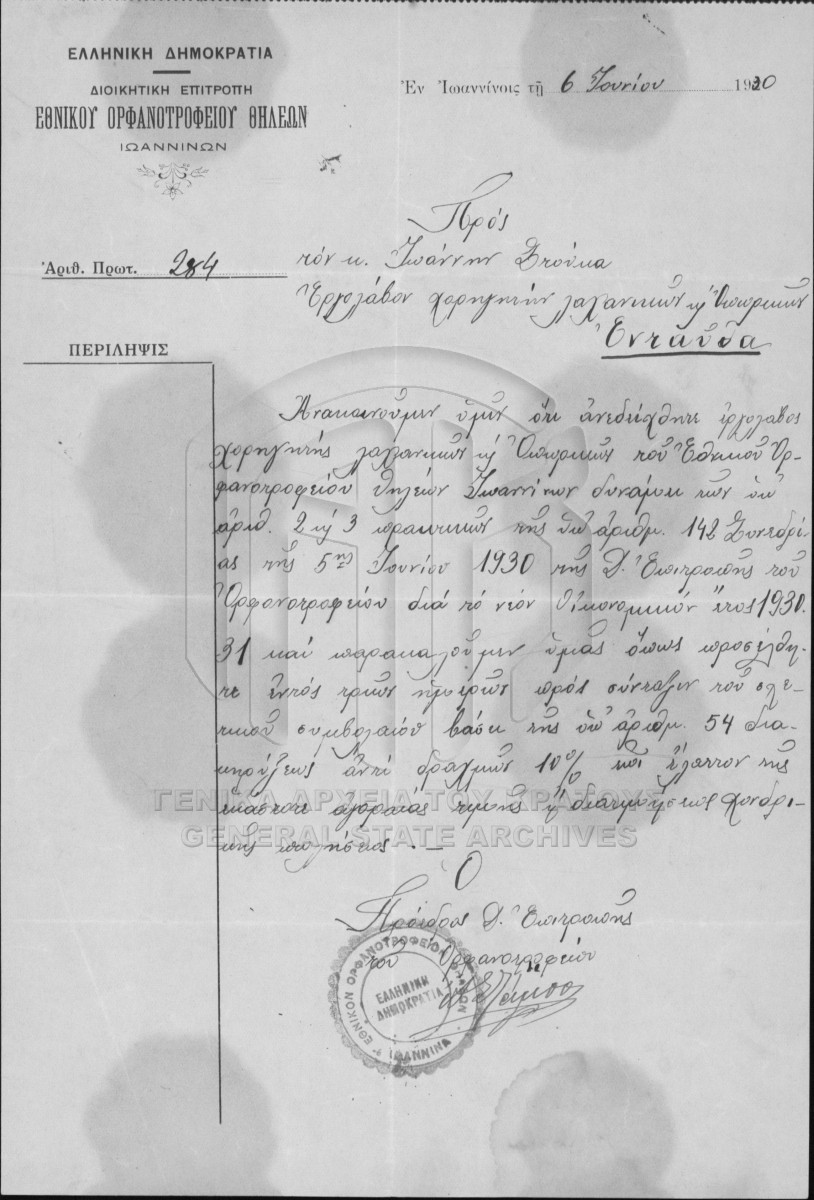 ΕΛΛΗΝΙΚΗ ΔΗΜΟΚΡΑΤΙΑ
ΔΙΟΙΚΗΤΙΚΗ ΕΠΙΤΡΟΠΗ
ΕΘΝΙΚΟΥ ΟΡΦΑΝΟΤΡΟΦΕΙΟΥ ΘΗΛΕΩΝ
ΙΩΑΝΝΙΝΩΝ
Ἐν Ἰωαννίνοις τῇ 6 Ἰουνίου 1930
Ἀριθ. Πρωτ. 284
ΠΕΡΙΛΗΨΙΣ
Πρός
τόν κ. Ἰωάννην Στούκα
Ἐργολάβον χορηγητήν λαχανικῶν κ Ὀπωρικῶν
Ἐνταῦθα
Ἀνακοινοῦμεν ὑμῖν ὅτι ἀνεδείχθητε ἐργολάβος
χορηγητής λαχανικῶν κ Ὀπωρικῶν τοῦ Ἐθνικοῦ Ὀρ-
φανοτροφείου Θηλέων Ἰωαννίνων δυνάμει τῶν ὑπ'
ἀριθ. 2 κ 3 πρακτικῶν τῆς ὑπ' ἀριθμ. 142 Συνεδρί-
ας τῆς 5ης Ἰουνίου 1930 τῆς Δ. Ἐπιτροπῆς τοῦ
Ὀρφανοτροφείου διά τό νέον Οἰκονομικόν ἔτος 1930-
31 καί παρακαλοῦμεν ὑμᾶς ὅπως προσέλθη-
τε ἐντός τριῶν ἡμερῶν πρός σύνταξιν τοῦ σχε-
τικοῦ συμβολαίου βάσει τῆς ὑπ' ἀριθμ. 54 δια-
κηρύξεως ἀντί δραχμῶν 10% ἐπί ἔλαττον τῆς
ἑκάστοτε ἀγοραίας τιμῆς ἤ διατιμήσεως χονδρι-
κῆς πωλήσεως . —
Ο
Πρόεδρος Δ. Ἐπιτροπῆς
τοῦ Ὀρφανοτροφείου
ΕΘΝΙΚΟΝ ΟΡΦΑΝΟΤΡΟΦΕΙΟΝ ΘΗΛΕΩΝ
ΕΛΛΗΝΙΚΗ
ΔΗΜΟΚΡΑΤΙΑ
ΙΩΑΝΝΙΝΑ
ΓΕΝΙΚΑ ΑΡΧΕΙΑ ΤΟΥ ΚΡΑΤΟΥΣ
GENERAL STATE ARCHIVES